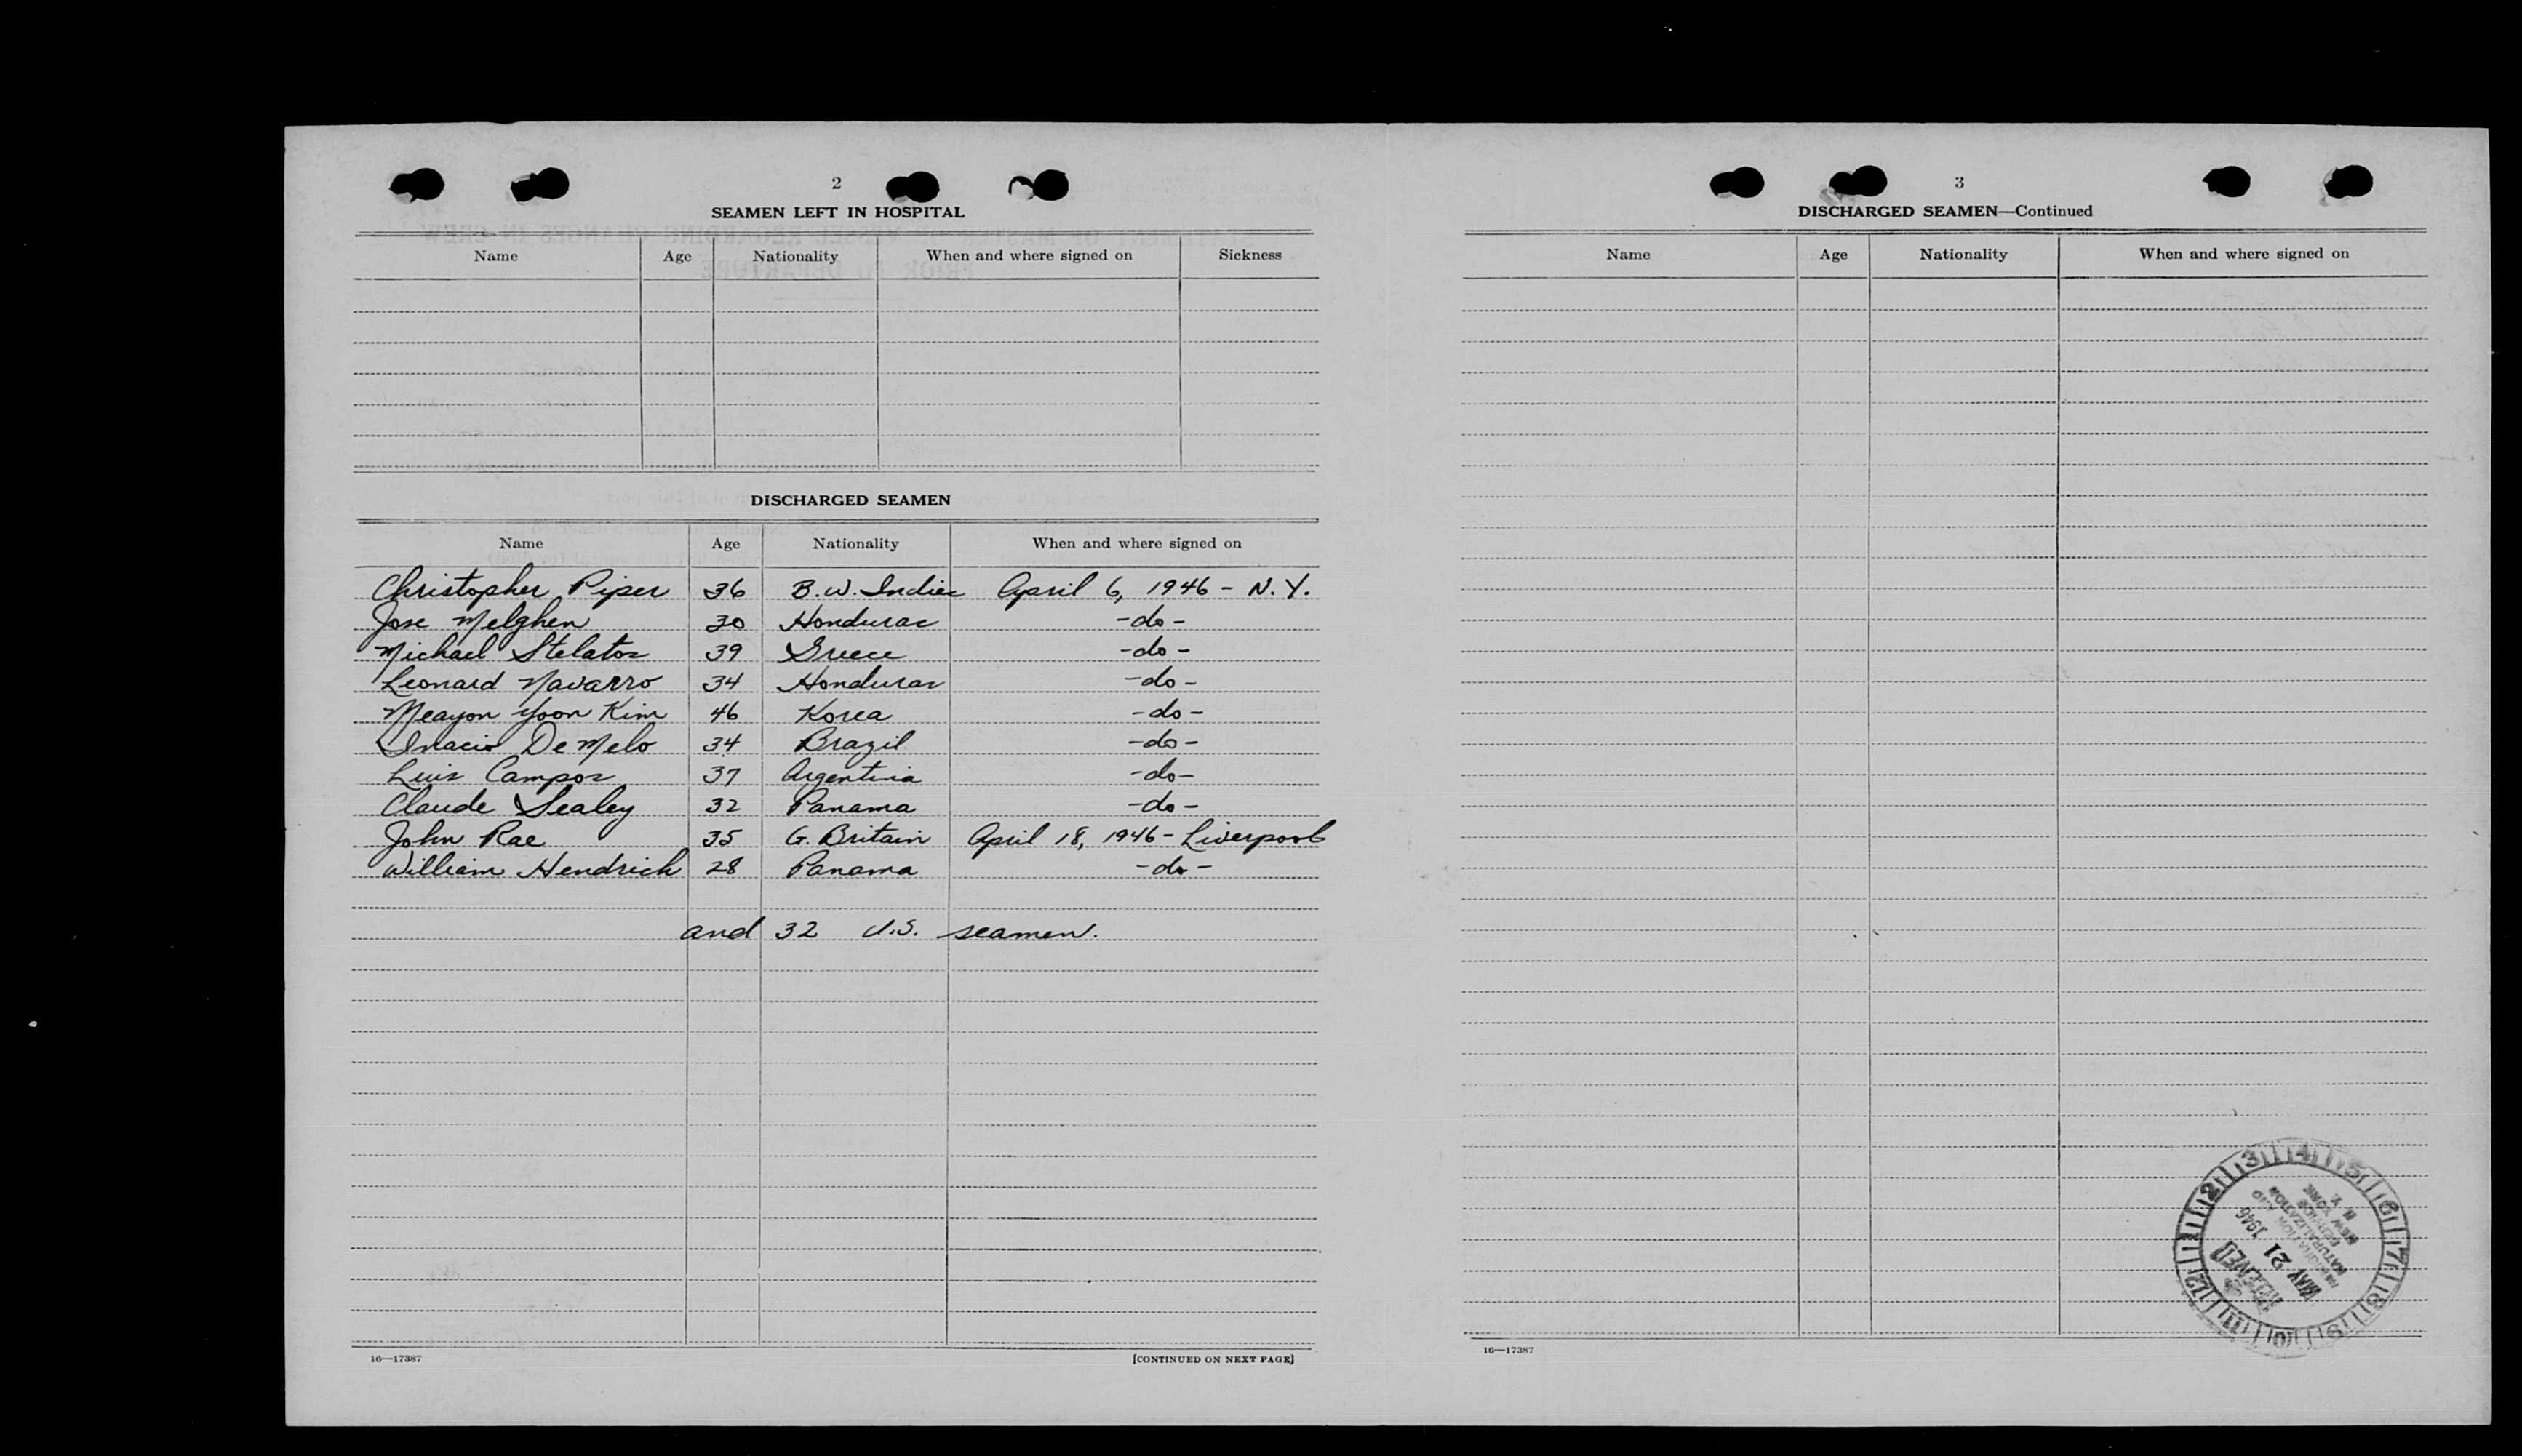 2
SEAMEN LEFT IN HOSPITAL
Name Age Nationality When and where signed on Sickness
DISCHARGED SEAMEN
Name Age Nationality When and where signed on
Christopher Piper 36 B.W. Indies April 6, 1946 - N.Y.
Jose Melghen 30 Honduras -do-
Michael Stelatos 39 Greece -do-
Leonard Navarro 34 Honduras -do-
Meayon Yoon Kim 46 Korea -do-
Inacio De Melo 34 Brazil -do-
Luis Campos 37 Argentina -do-
Claude Sealey 32 Panama -do-
John Rae 35 G. Britain April 18, 1946 - Liverpool
William Hendrich 28 Panama -do-
and 32 U.S. seamen.
16—17387 [CONTINUED ON NEXT PAGE]
3
DISCHARGED SEAMEN—Continued
Name Age Nationality When and where signed on
1 2 3 4 5 6 7 8 9 10 11 12
RECEIVED
MAY 21 1946
IMMIGRATION AND
NATURALIZATION
SERVICE
NEW YORK
N.Y.
16—17387